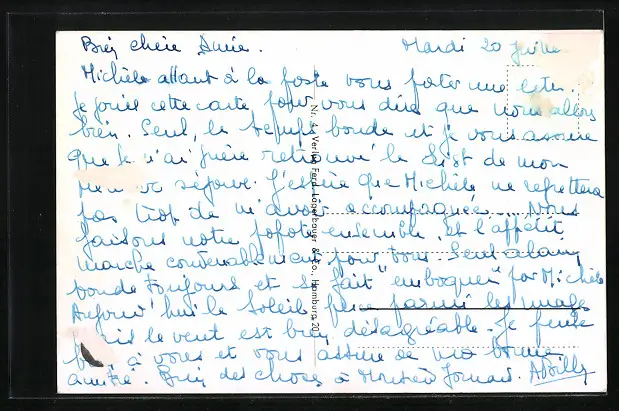 Bien chère Amie.
Mardi 20 Juillet
Michèle allant à la poste vous porter une lettre.
Je joins cette carte pour vous dire que nous allons
bien. Seul, le temps boude et je vous assure
que je n'ai guère retrouvé le de mon
séjour. J'espère que Michèle ne regrettera
pas trop de m'avoir accompagnée.... Nous
faisons notre popote ensemble. Et l'appétit
marche convenablement pour tous. Seul
boude toujours et se fait "emboquer" par Michèle
Aujourd'hui le Soleil perce parmi les nuages
mais le vent est bien désagréable. Je pense
à vous et vous assure de ma bonne
amitié. Bien des choses à Monsieur
Nr. 4 Verlag Ferd. Lagerbauer & Co., Hamburg 20